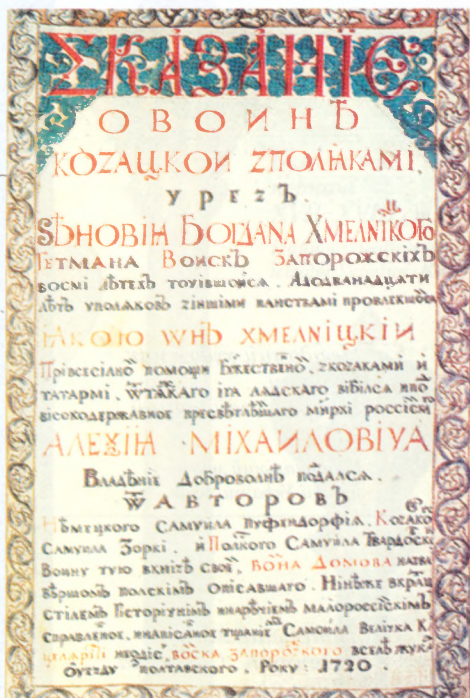 СКАЗАНИЕ
О ВОИНѢ
КОZАЦКОИ ZПОЛѦКАМИ,
УРЕZЪ
ЅѢНОВІѦ БОГДАНА ХМЕЛНІЦКОГО
ГЕТМАНА ВОИСКЪ ЗАПОРОЖСКІХЪ
ВОСМІ ЛѢТЕХЪ ТОУІВШОЙСѦ. АДОДВАНАДЦАТИ
ЛѢТЪ УПОЛѦКОВЪ ZІНШІМИ ПАНСТВАМІ ПРОВЛЕКШОЙСѦ
ІАКОЮ WНЪ ХМЕЛНІЦКІИ
ПРІВСЕСІЛНОЙ ПОМОЩИ БЖЕСТВЕНОЙ, ZКОZАКАМИ Й
ТАТАРМІ, ѾТѦЖКАГО ІГА ЛАДСКАГО ВІБІЛСѦ
ВІСОКОДЕРЖАВНОЕ ПРЕСВѢТЛѢШАГО МНРХІ РОССІЙСКОГО
АЛЕѮІѦ МІХАИЛОВІУА
ВЛАДѢНІЕ ДОБРОВОЛНѢ ПОДАЛСѦ.
ѾАВТОРОВЪ
НѢМЕЦКОГО САМУИЛА ПУФЕНДОРФІѦ, КОZАКОГО
САМУИЛА ЗОРКІ, И ПОЛКОГО САМУИЛА ТВАРДОСКОГО
ВОИНУ ТУЮ ВКНІZѢ СВОЙ, ВОЙНА ДОМОВА
ВѢРШОМЪ ПОЛСКІМЪ ОПІСАВШАГО. НІНѢЖЕ ВКРАЦЕ
СТІЛЕМЪ ГІСТОРІУНІМЪ ИНАРѢУІЕМЪ МАЛОРОССІЙСКІМЪ
СПРАВЛЕНОЕ, ИНАПІСАНОЕ ТЩАНІЕМЪ САМОИЛА ВЕЛІУКА
ЦЕЛѦРІЙ ВОЙСКА ЗАПОРОЗКОГО ВСЕЛѢ ЖУКАХЪ
ОУЕZДУ ПОЛТАВСКОГО, РОКУ: 1720.